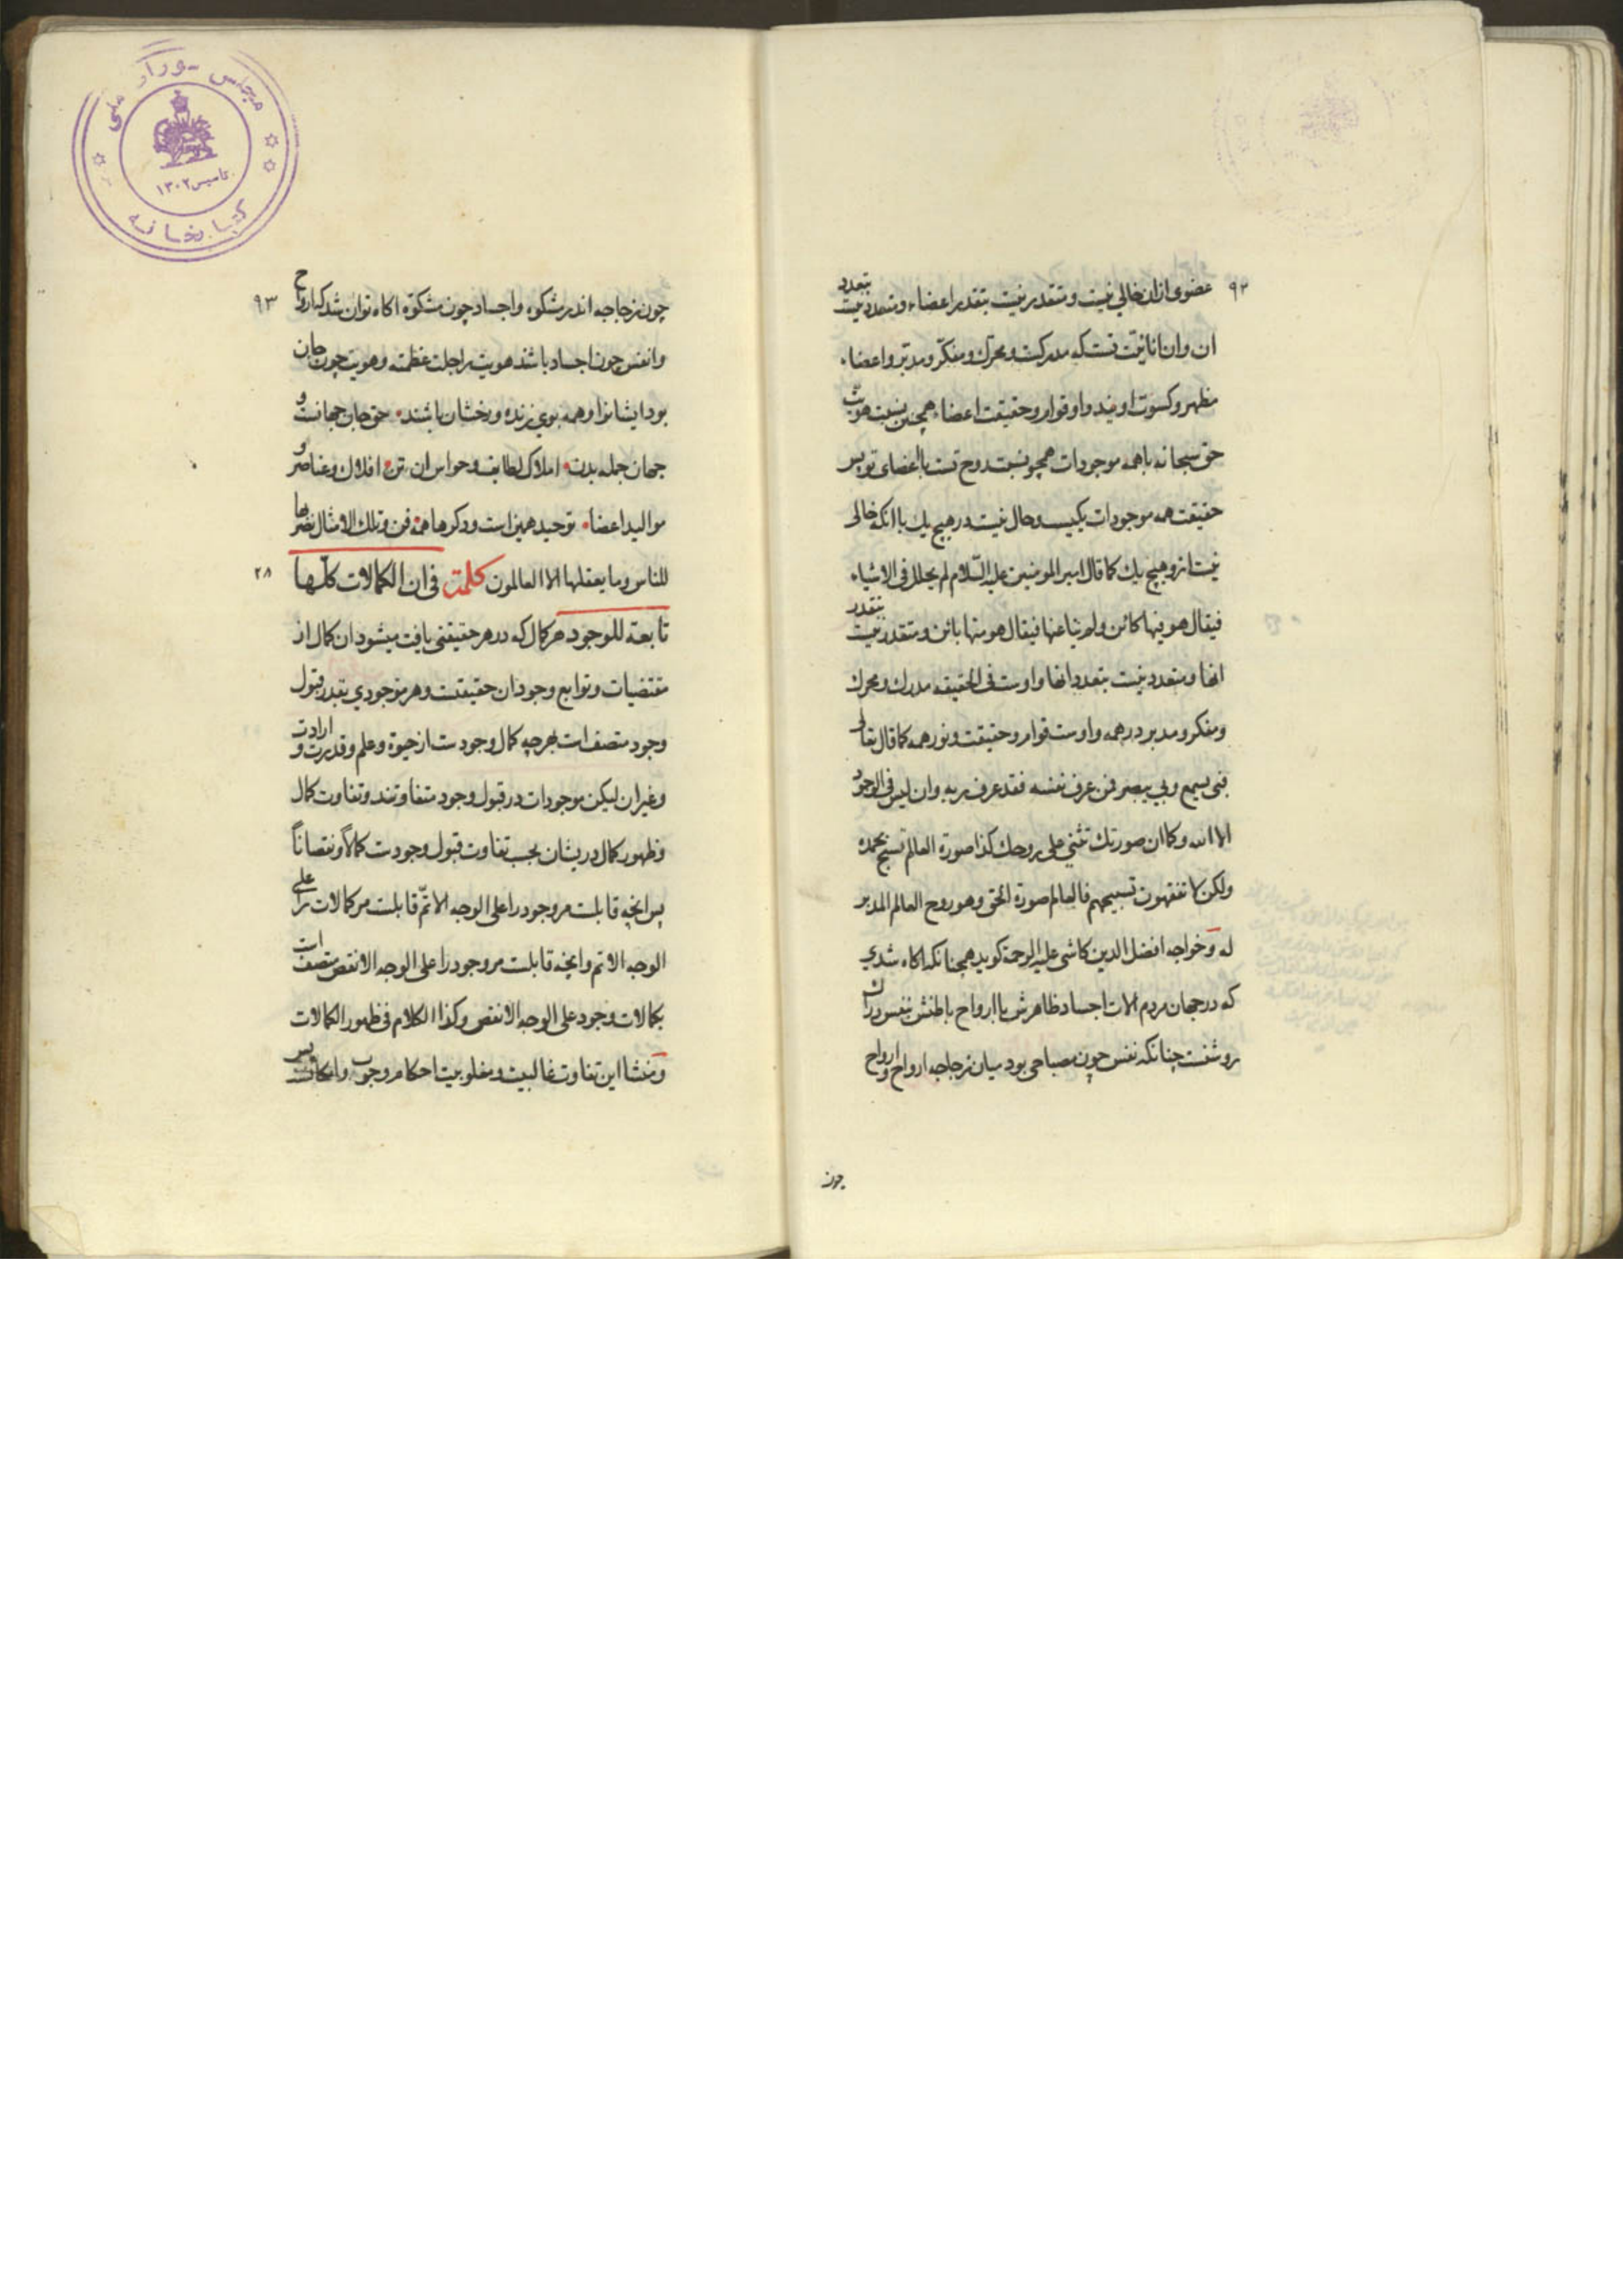 ٩٢
عضوی ازان خالی نیست و متقدر نیست بتقدر اعضاء و متعدد نیست بتعدد
ان و ان انانیّت تست که مدرکست و محرّک و مفکّر و مدبّر و اعضاء
مظهر و کسوت اویند و او قوام و حقیقت اعضاء همچنین نسبت هویت
حق سبحانه با همه موجودات همچو نسبت روح تست با اعضای تو پس
حقیقت همه موجودات یکیست و حال نیست در هیچ یك با انکه خالی
نیست ازو هیچ یك کما قال امیر المومنین علیه السّلام لم یحلل فی الاشیاء
فیقال هو فیها کائن ولم ینا عنها فیقال هو منها بائن و متقدر نیست بتقدر
انها و متعدد نیست بتعدد انها و اوست فی الحقیقه مدرك و محرك
و مفکر و مدبر در همه و اوست قوام و حقیقت و نور همه کما قال تعالی
فبی یسمع وبی یبصر فمن عرف نفسه فقد عرف ربه وان لیس فی الوجود
الا الله وکما ان صورتك تثنی علی روحك کذا صورة العالم تسبح بحمده
ولکن لا تفقهون تسبیحهم فالعالم صورة الحق وهو روح العالم المدبر
له و خواجه افضل الدین کاشی علیه الرحمة کوید همچنانکه اکاه شدی
که در جهان مردم الات اجساد ظاهرش با ارواح باطنش بنفس دران
روشنست چنانکه نفس چون مصباحی بود میان زجاجه ارواح و ارواح
چون
٩٣
چون زجاجه اندر مشکوه و اجساد چون مشکوة اکاه توان شد که ارواح
و انفس چون اجساد باشند هویت را جلت عظمته و هویت چون جان
بود ایشانرا و همه بوی زنده و رخشان باشند حق جان جهانست و
جهان جمله بدن املاک لطایف و حواس ان تن افلاك و عناصر و
موالید اعضا توحید همین است و دکرها همه فن وتلك الامثال نضربها
للناس وما یعقلها الا العالمون کلمة فی ان الکمالات کلّها
٢٨
تابعة للوجود هر کمال که در هر حقیقتی یافت میشود ان کمال از
مقتضیات و توابع وجود ان حقیقتست و هر موجودی بقدر قبول
وجود متصف است بهرچه کمال وجود ست از حیوة و علم و قدرت و ارادت
و غیر ان لیکن موجودات در قبول وجود متفاوتند و تفاوت کمال
و ظهور کمال در یشان بحسب تفاوت قبول وجود ست کمالاً و نقصاناً
پس انچه قابلست مر وجود را علی الوجه الاتمّ قابلست مر کمالات را علی
الوجه الاتم و انچه قابلست مر وجود را علی الوجه الانقص متصف است
بکمالات وجود علی الوجه الانقص وکذا الکلام فی ظهور الکمالات
و منشا این تفاوت غالبیت و مغلوبیت احکام وجوب و امکانست پس
مجلس شورای ملی
تاسیس ١٣٠٢
کتابخانه